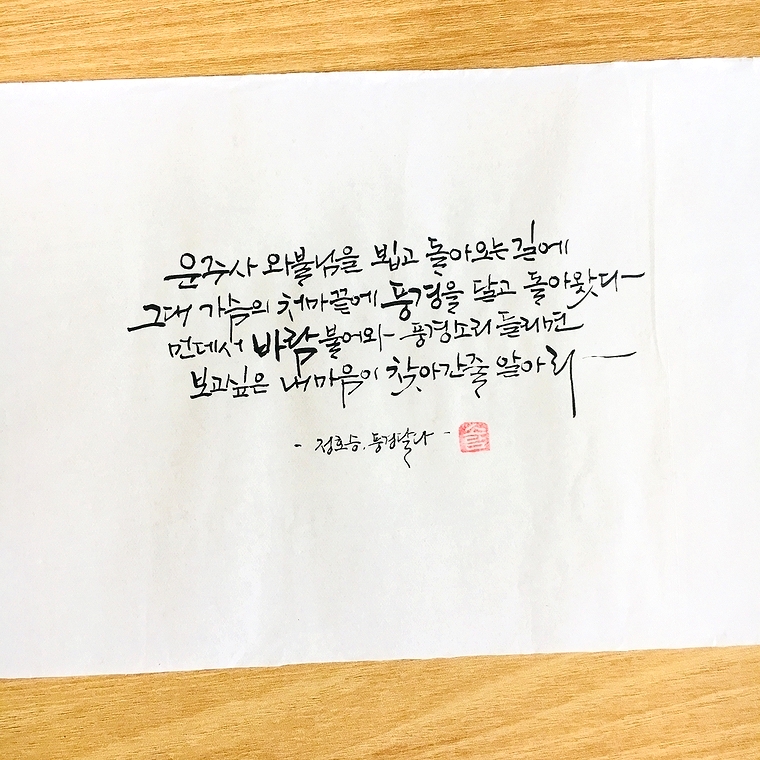 운주사 와불님을 뵙고 돌아오는 길에
그대 가슴의 처마끝에 풍경을 달고 돌아왔다
먼데서 바람 불어와 풍경소리 들리면
보고싶은 내마음이 찾아간줄 알아라
- 정호승. 풍경달다 -